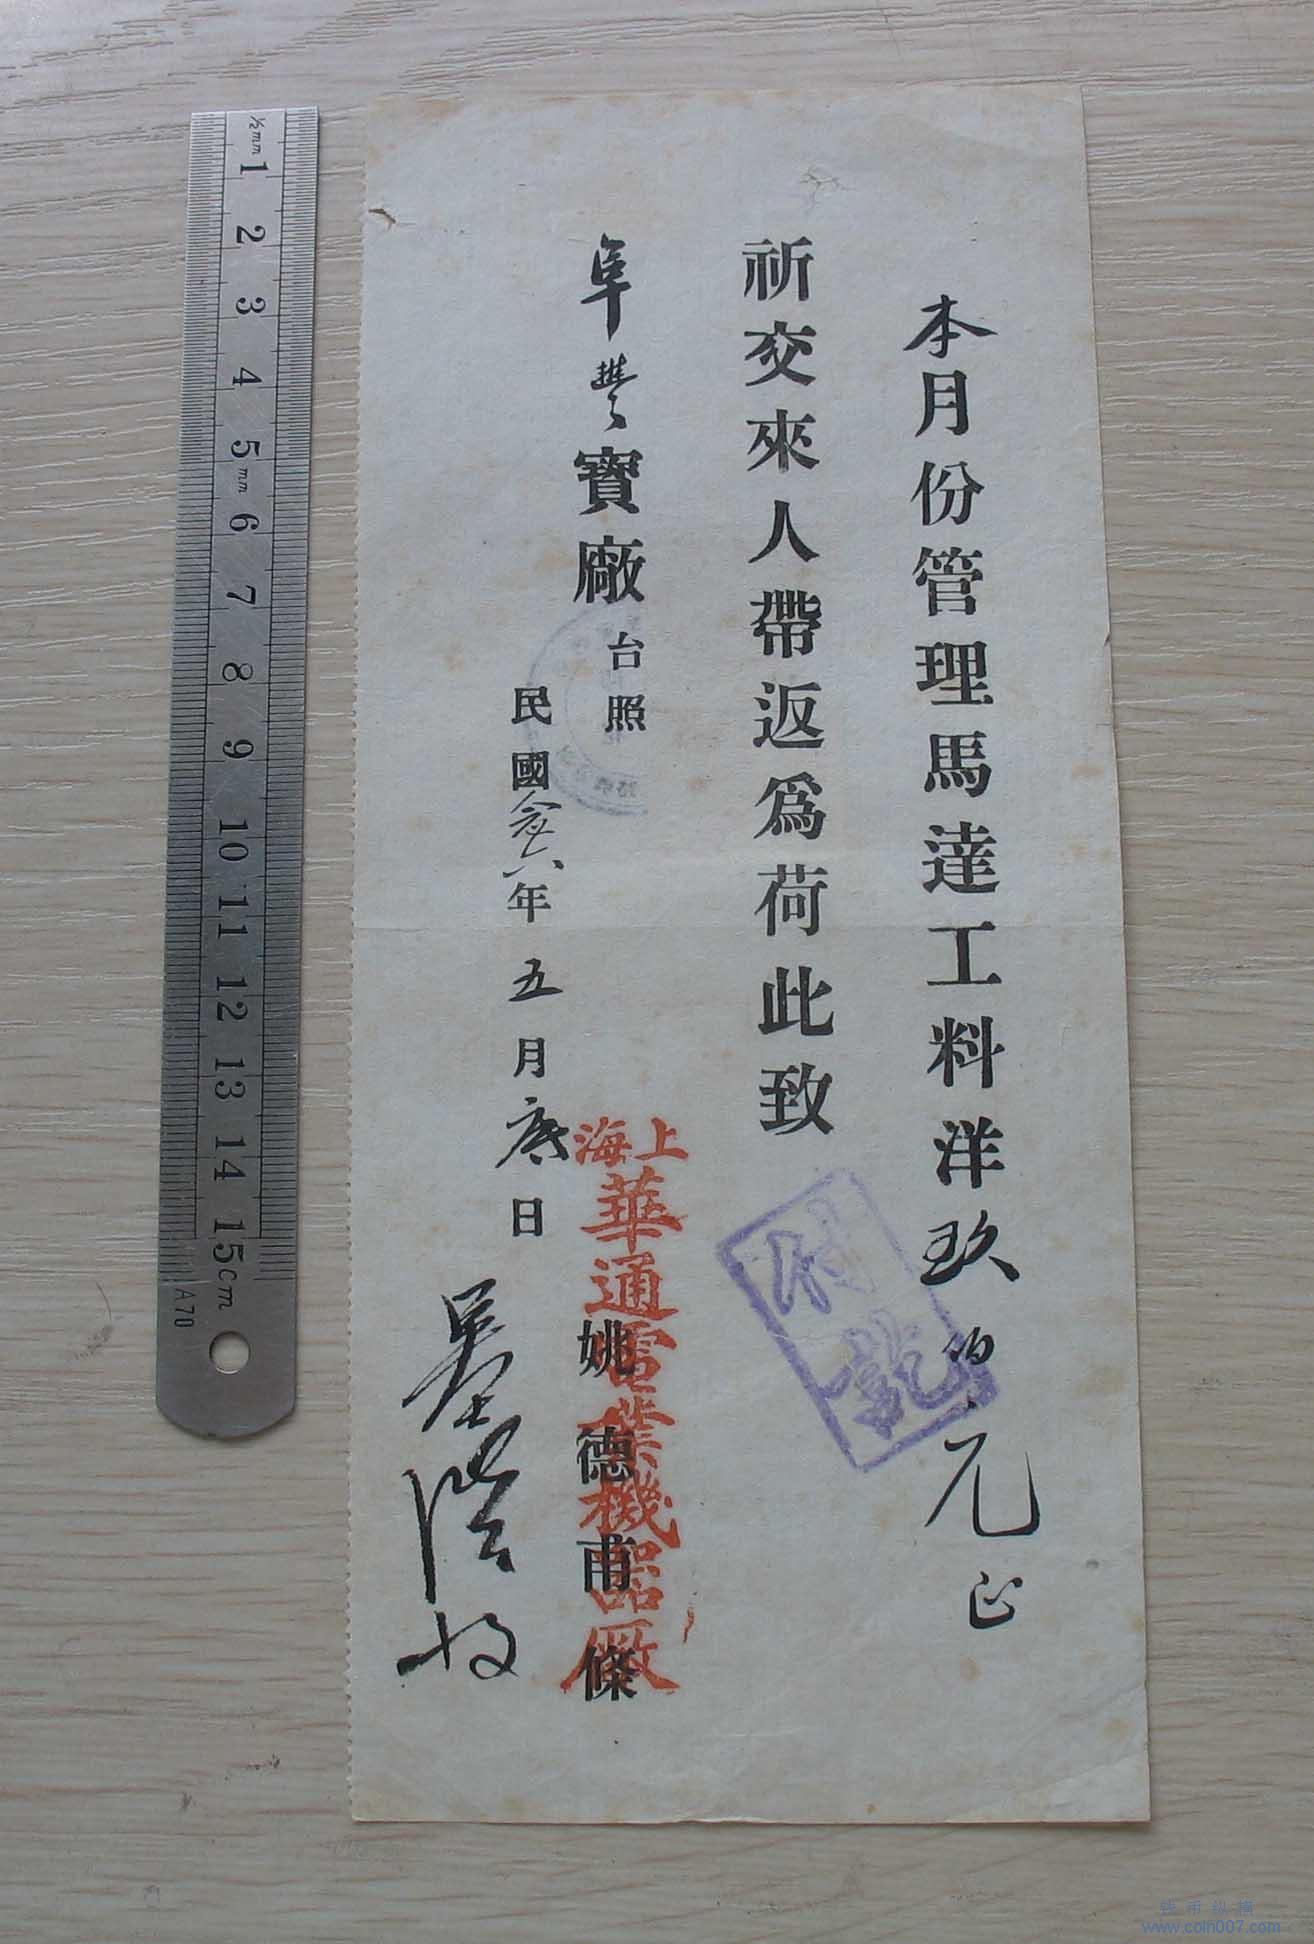 本月份管理馬達工料洋玖元正
祈交來人帶返爲荷此致
阜豐寶廠台照
上海
華通電業機器廠
姚德甫條
民國念六年五月底日
付訖
½mm 1 2 3 4 5 mm 6 7 8 9 10 11 12 13 14 15cm
A70
钱币纵横
www.coin007.com